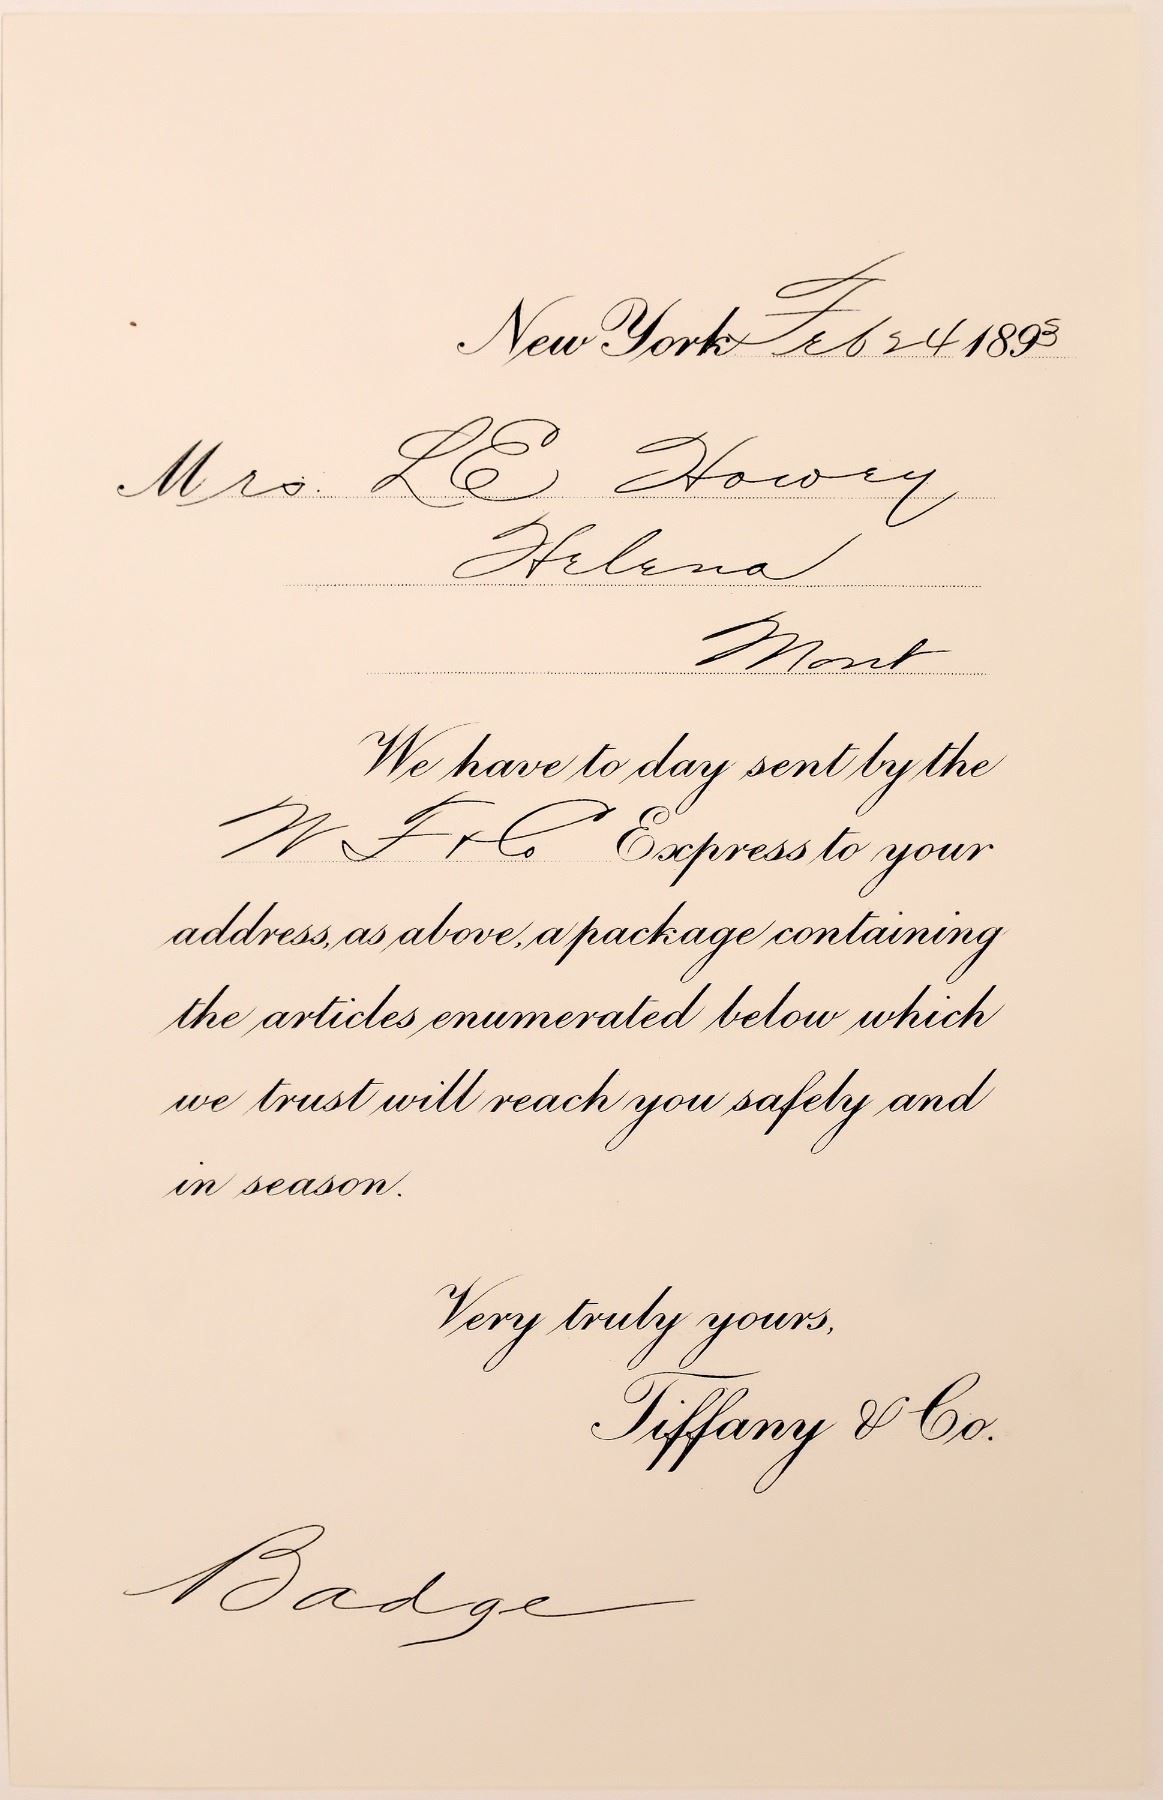 New York Feb 24 1893
Mrs. L E Howey
Helena
Mont
We have to day sent by the
W F & Co Express to your
address, as above, a package containing
the articles enumerated below which
we trust will reach you safely and
in season.
Very truly yours,
Tiffany & Co.
Badge